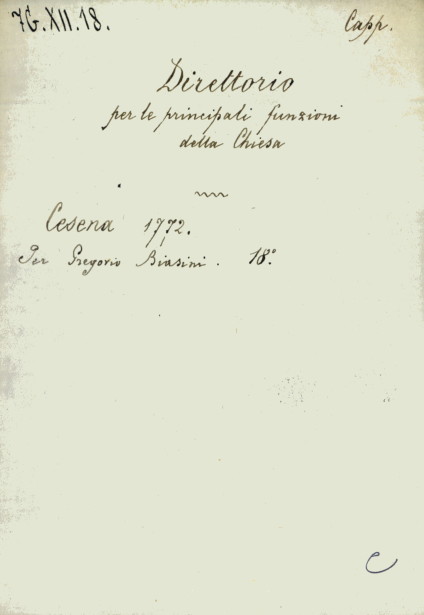 7G.XII.18.
Capp.
Direttorio
per le principali funzioni
della Chiesa
Cesena 1772.
Per Gregorio Biasini. 18º
C